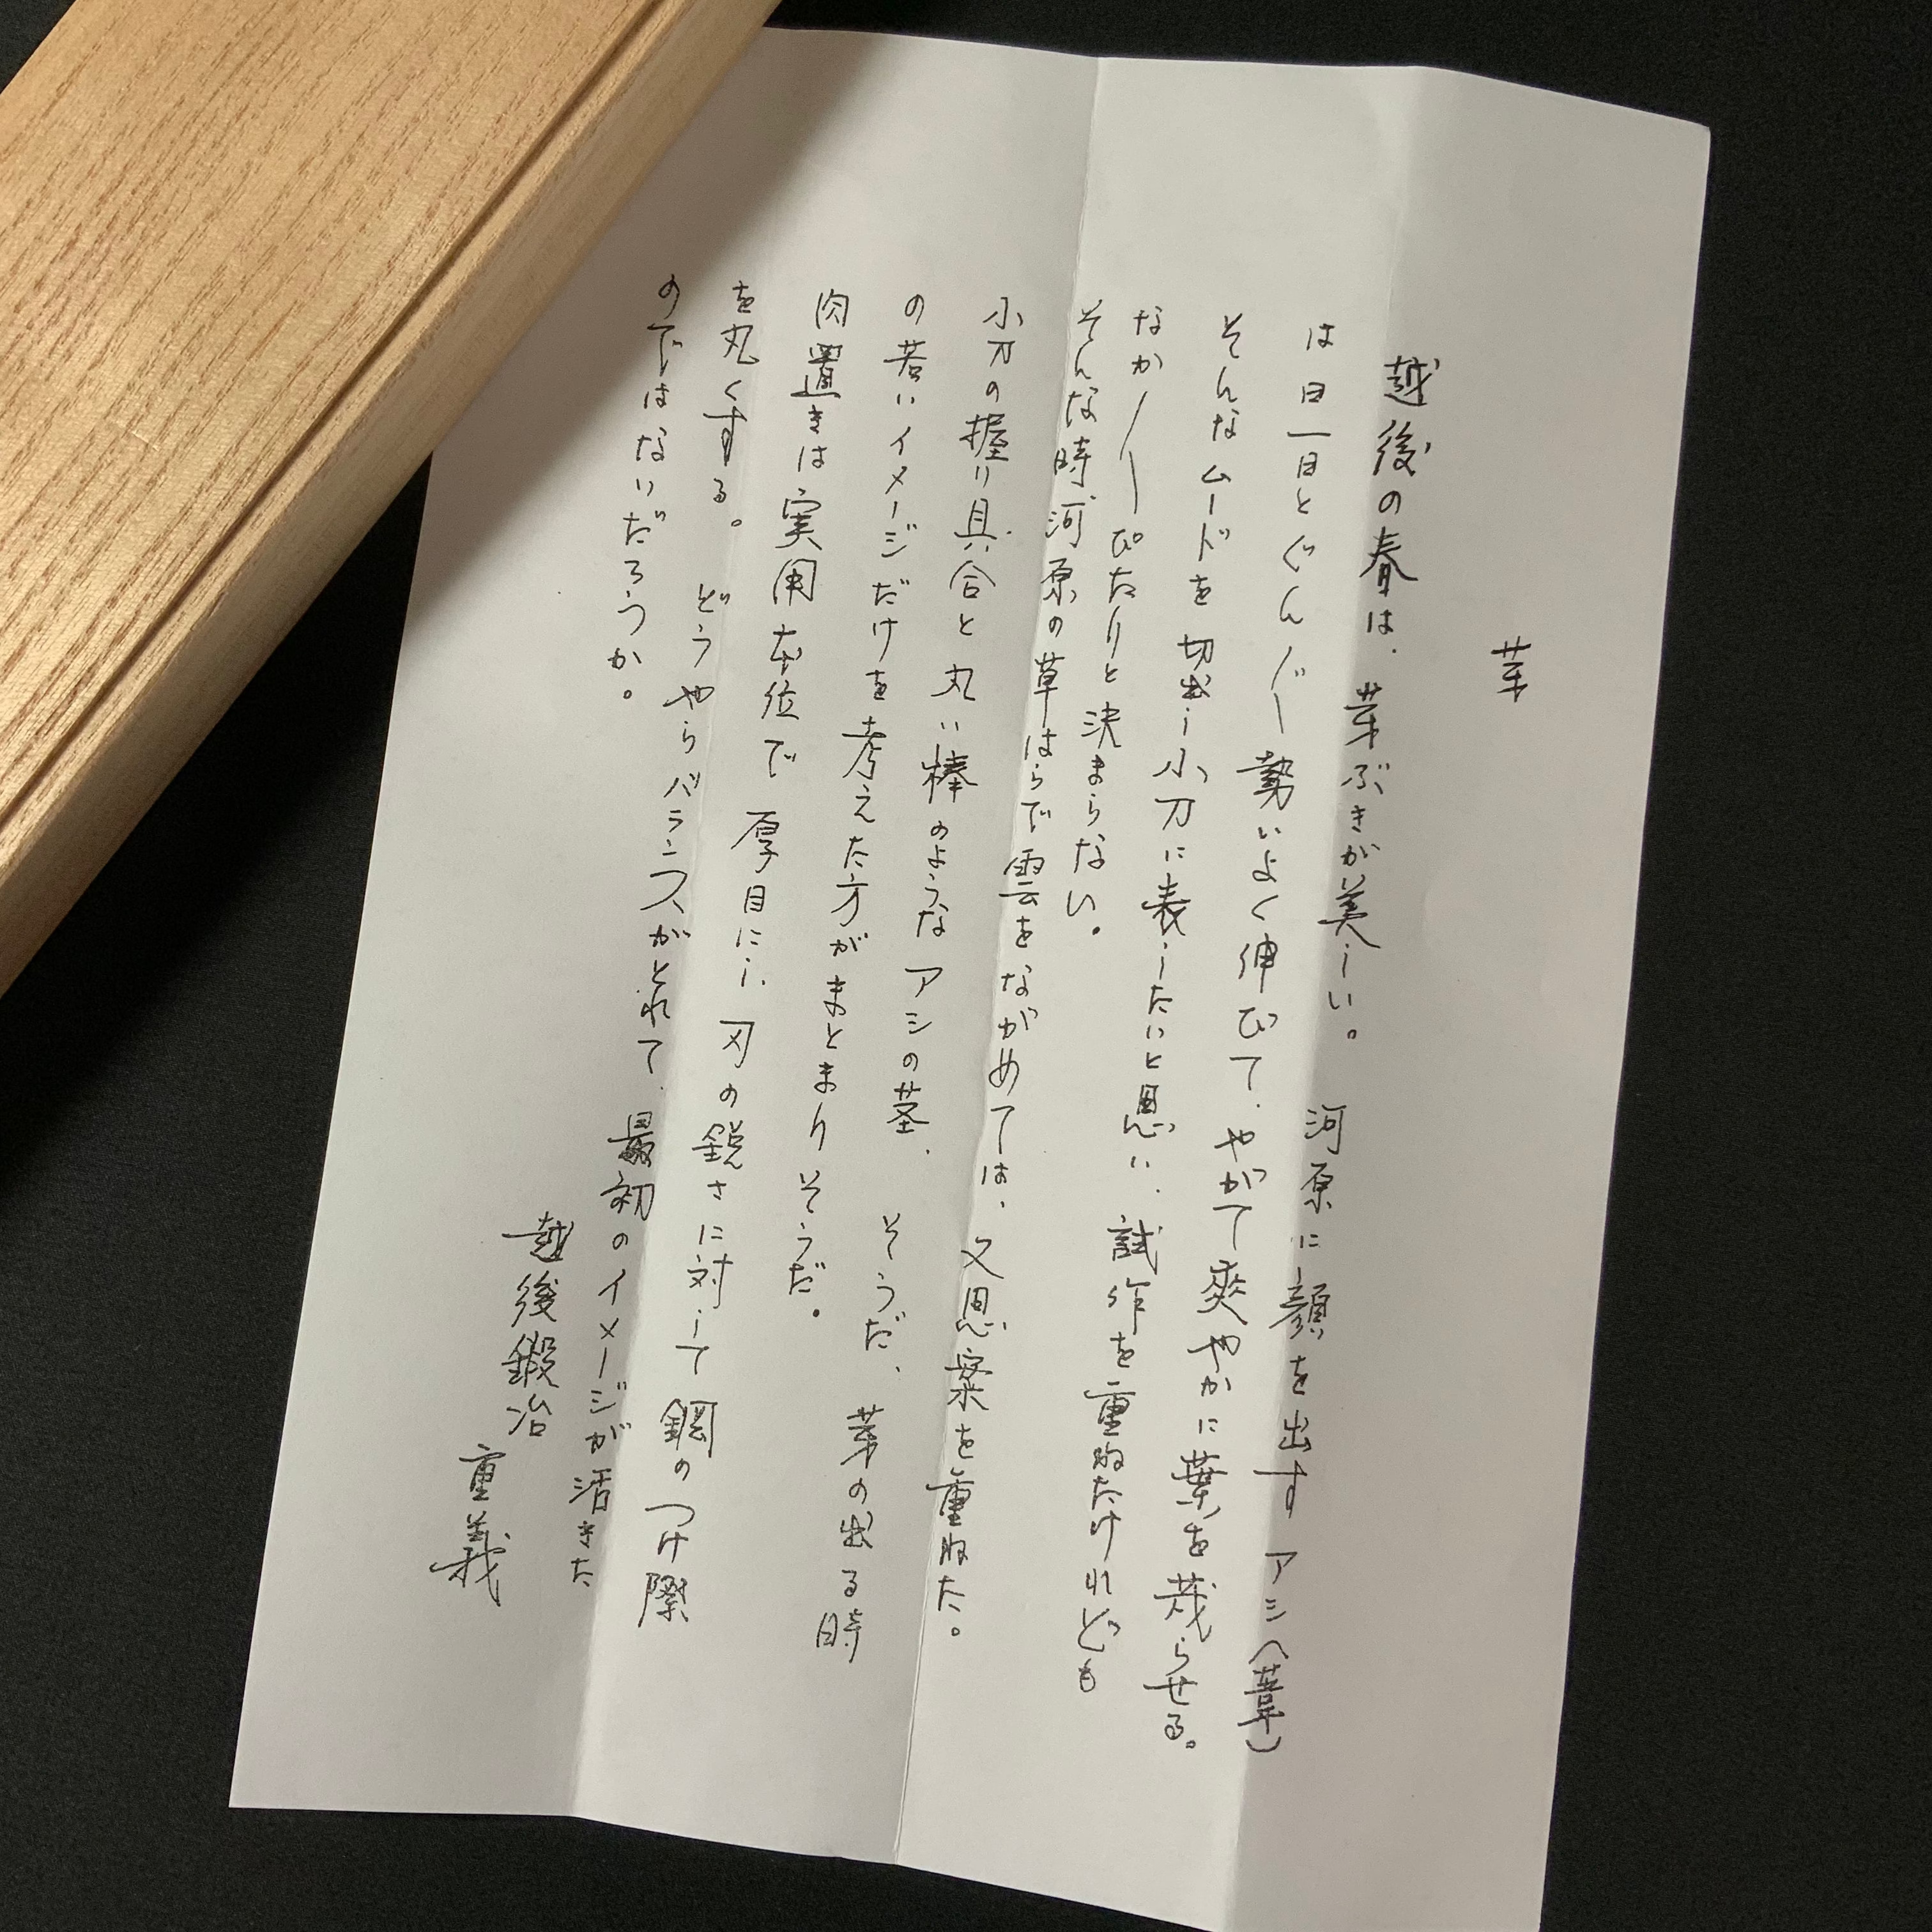 芽
越後の春は、芽ぶきが美しい。河原に顔を出すアシ(葦)
は日一日とぐんぐん勢いよく伸びて、やがて爽やかに葉を茂らせる。
そんなムードを切出し小刀に表したいと思い、試作を重ねたけれども
なか〳〵ぴたりと決まらない。
そんな時河原の草はらで雲をながめては、又思案を重ねた。
小刀の握り具合と丸い棒のようなアシの茎、そうだ、芽の出る時
の若いイメージだけを考えた方がまとまりそうだ。
肉置きは実用本位で厚目にし、刃の鋭さに対して鋼のつけ際
を丸くする。どうやらバランスがとれて、最初のイメージが活きた
のではないだろうか。
越後鍛冶
重義